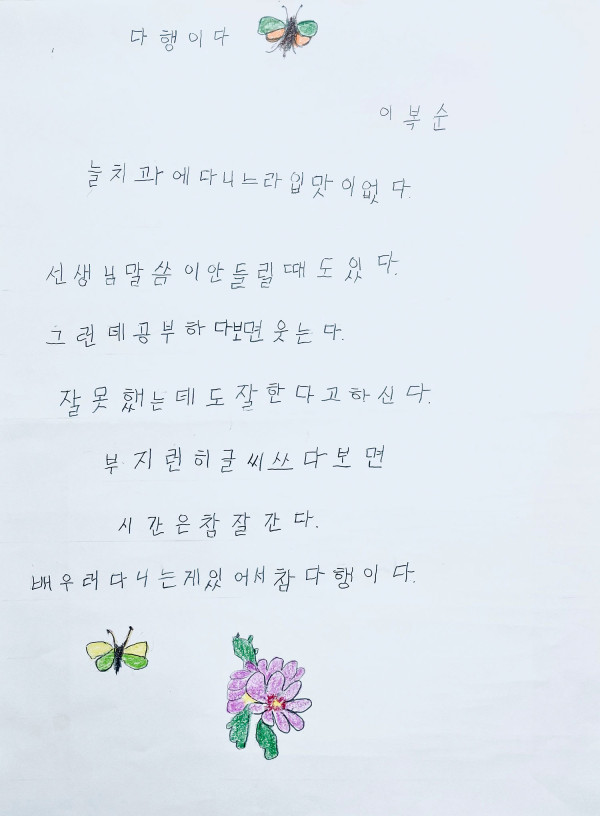 다행이다
이복순
늘치과에다니느라입맛이없다.
선생님말씀이안들릴때도있다.
그런데공부하다보면웃는다.
잘못했는데도잘한다고하신다.
부지런히글씨쓰다보면
시간은참잘간다.
배우러다니는게있어서참다행이다.